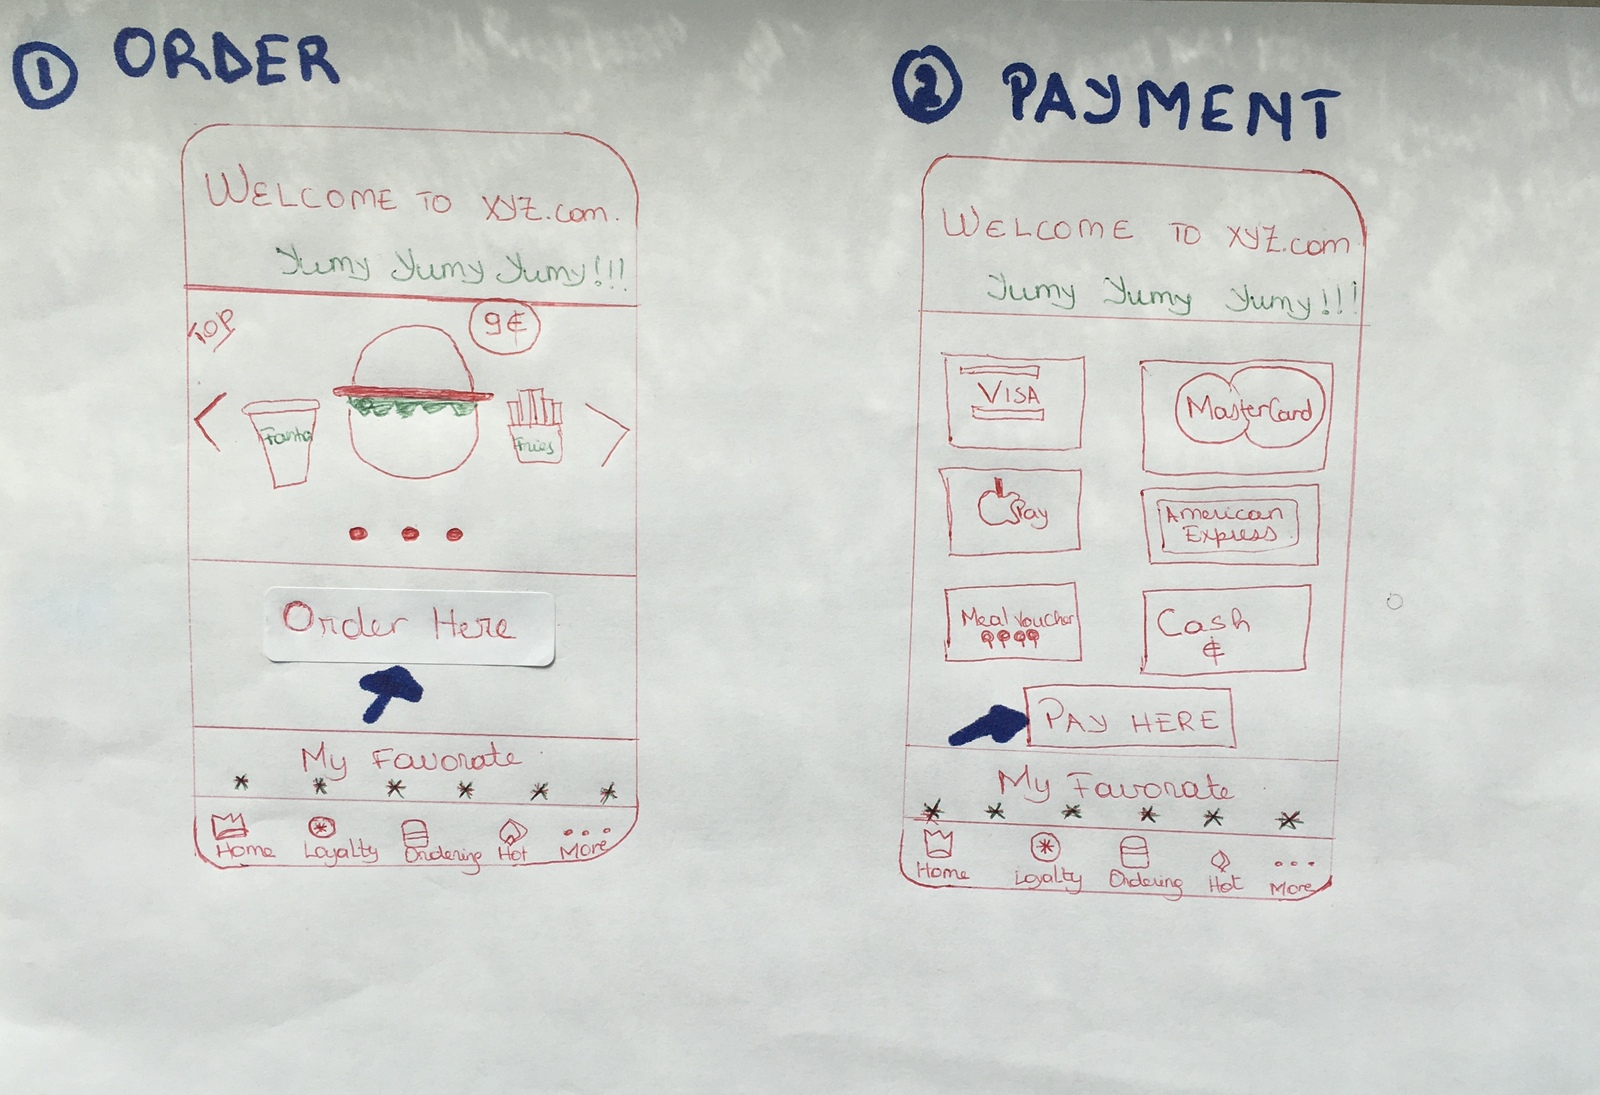 1 ORDER
WELCOME TO XYZ.com.
Yumy Yumy Yumy!!!
TOP
9€
Fanta
Fries
Order Here
My Favorate
Home Loyalty Ordering Hot More
2 PAYMENT
WELCOME TO XYZ.com
Yumy Yumy Yumy!!!
VISA
MasterCard
Pay
American
Express
Meal Voucher
Cash
€
PAY HERE
My Favorate
Home Loyalty Ordering Hot More